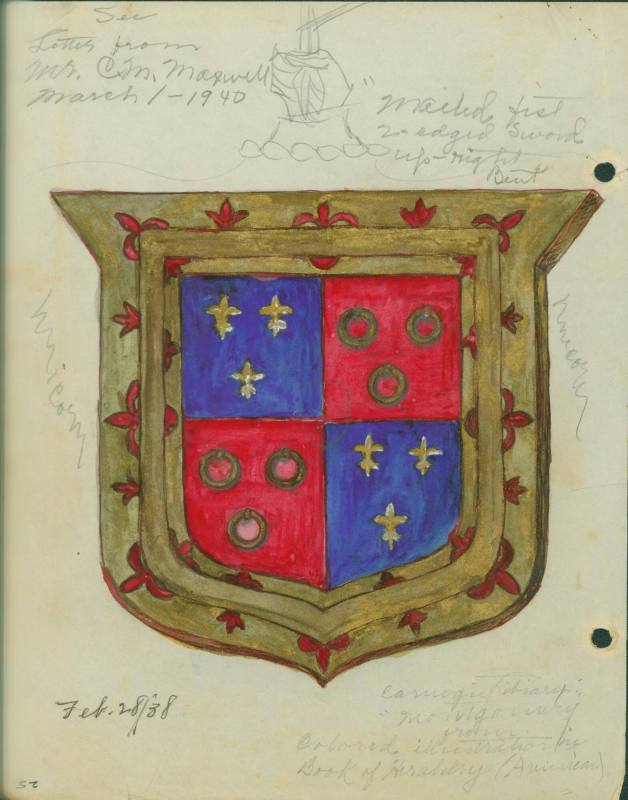 See
Letter from
Mr. C. M. Maxwell
March 1-1940
Mailed fist
2-edged Sword
up-right
Bent
Unicorn
Unicorn
Feb. 28/38
Carnegie Library:
"Montgomery
from
Colored illustration in
Book of Heraldry (American)
52